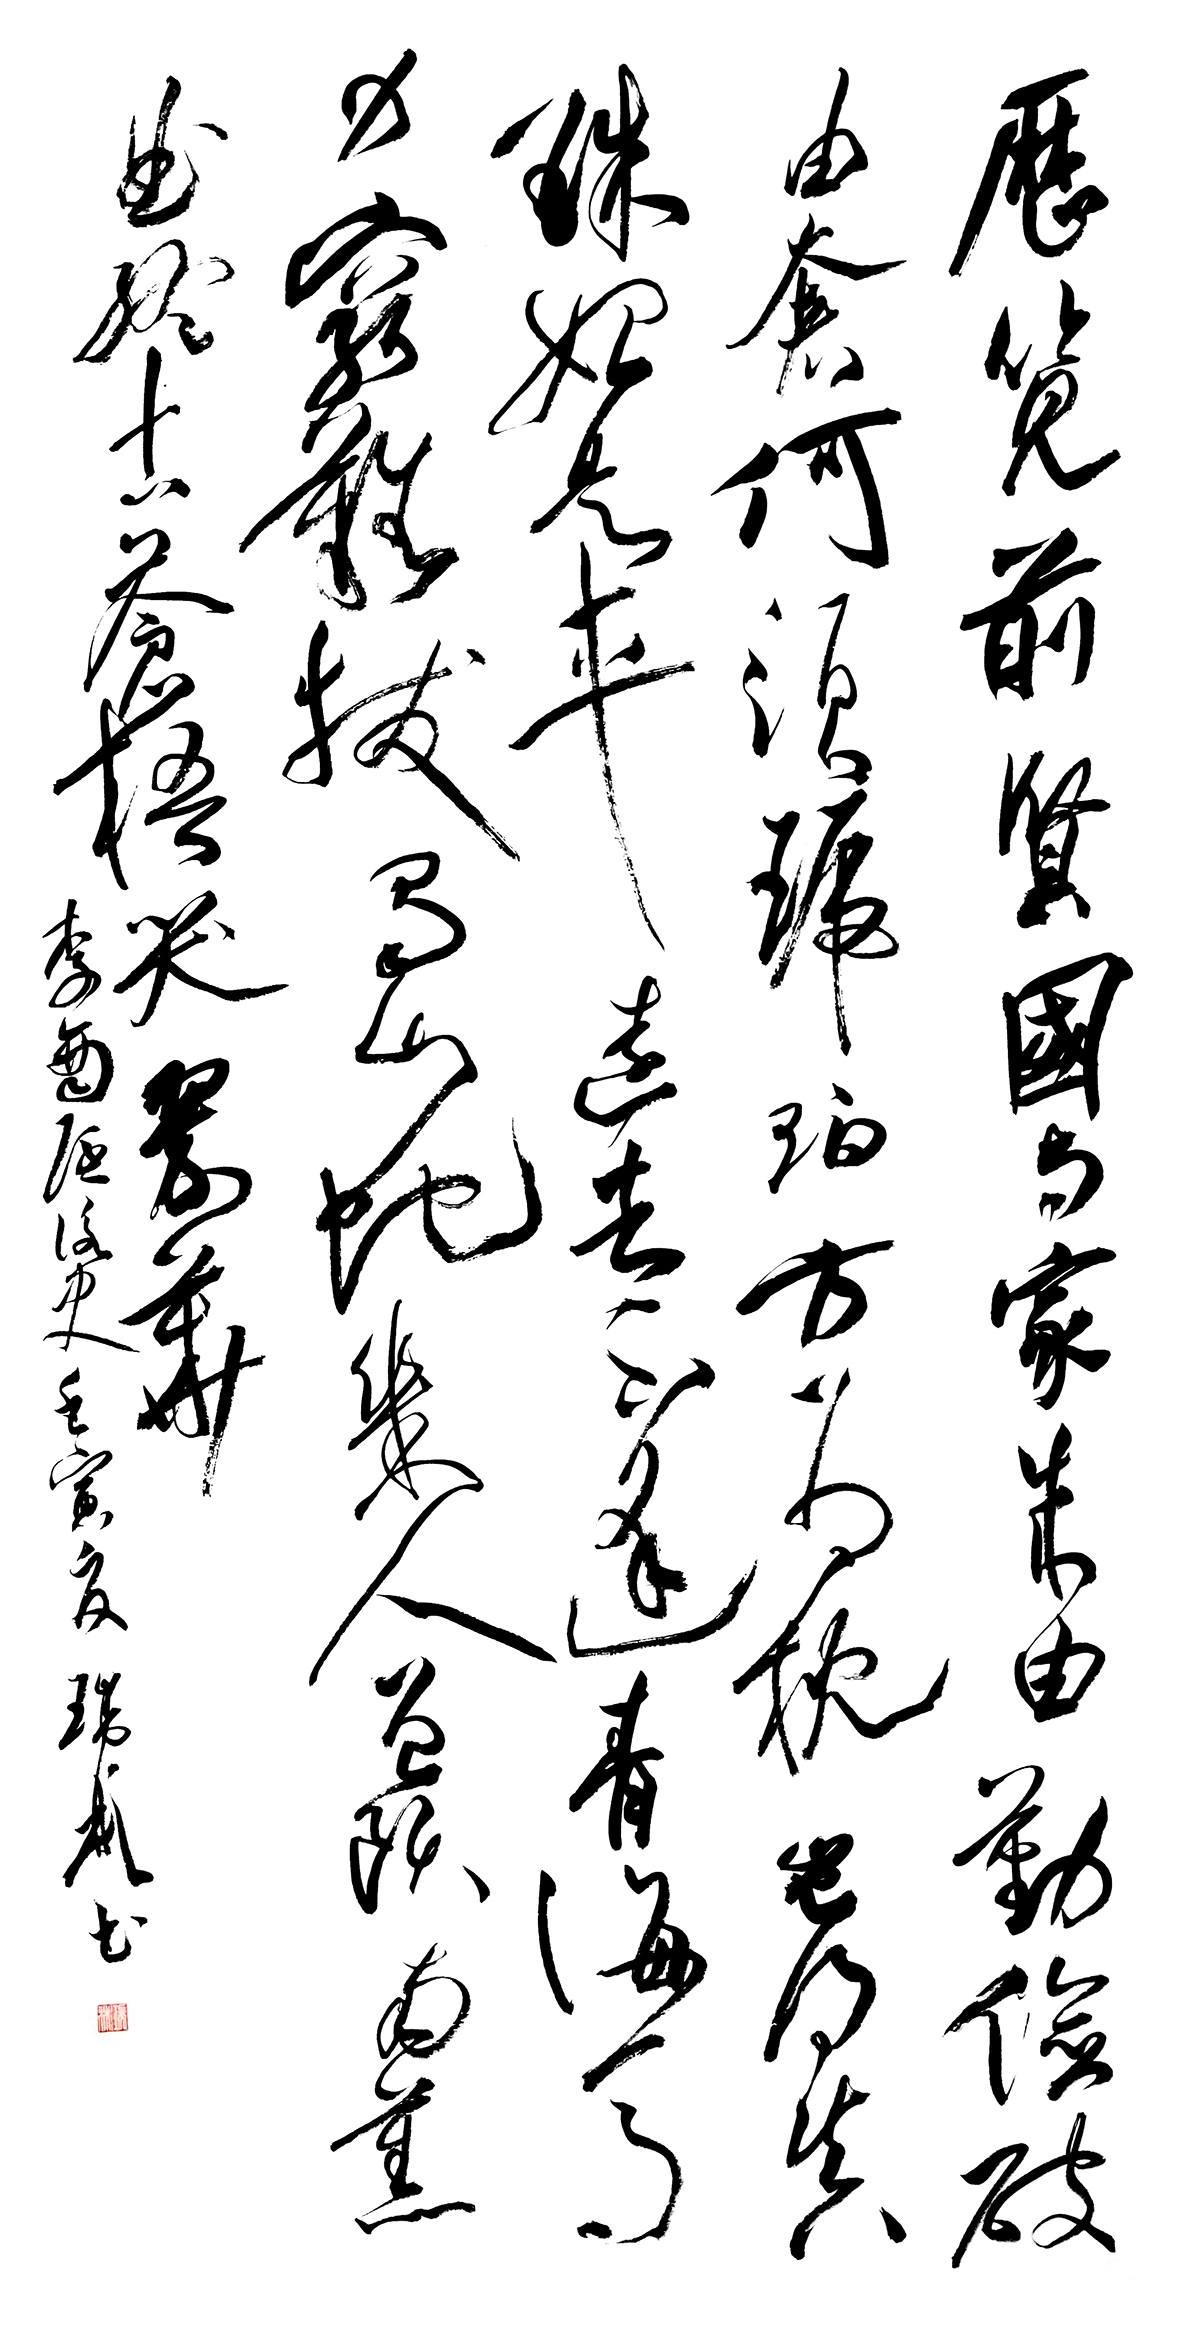 歷覽前賢國与家成由勤儉破
由奢何須琥珀方為枕豈得真
珠始是車遠去不逢青海馬
力窮難拔蜀山蛇幾人曾預南薰
曲終古蒼梧哭翠華
李商隱詠史壬寅夏瑞書